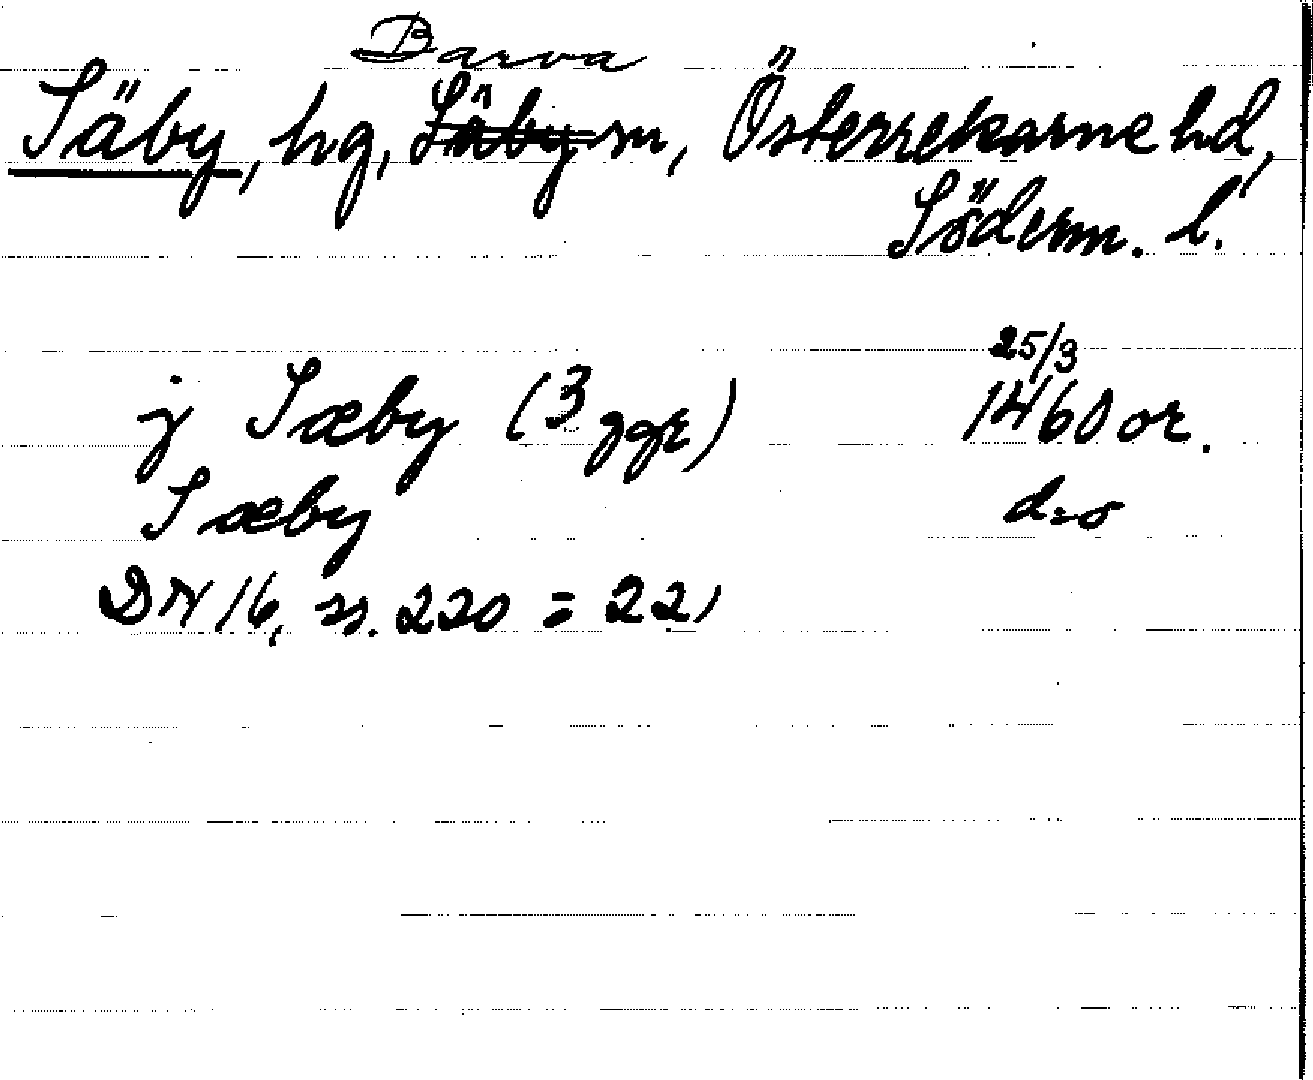 Barva
Säby, hg, Säby sn, Österrekarne hd,
Söderm. l.
25/3
j Sæby (3 ggr) 1460 or.
Sæby d:o
DN 16, s. 220 = 221